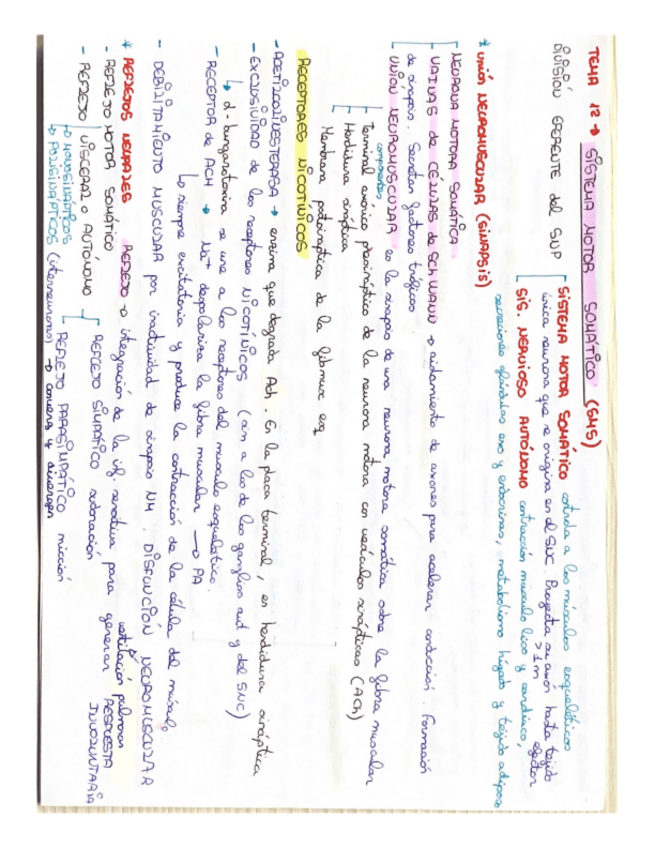 TEMA 12 → SISTEMA MOTOR SOMÁTICO (SMS)
DIVISIÓN EFERENTE del SNP
SISTEMA MOTOR SOMÁTICO controla a los músculos esqueléticos
única neurona que se origina en el SNC. Proyecta su axón hasta tejido efector
>1m
SIS. NERVIOSO AUTÓNOMO contracción músculo liso y cardíaco
secreciones glándulas exo y endocrinas, metabolismo hígado y tejido adiposo
* UNIÓN NEUROMUSCULAR (SINAPSIS)
NEURONA MOTORA SOMÁTICA
VAINAS de CÉLULAS de SCHWANN → aislamiento de axones para acelerar conducción. Formación
de sinapsis. Secretan factores tróficos
UNIÓN NEUROMUSCULAR es la sinapsis de una neurona motora somática sobre la fibra muscular
componentes
Terminal axónico presináptico de la neurona motora con vesículas sinápticas (ACh)
Hendidura sináptica
Membrana postsináptica de la fibra esq
RECEPTORES NICOTINICOS
- ACETILCOLINESTERASA → enzima que degrada Ach. En la placa terminal, en hendidura sináptica
- EXCLUSIVIDAD de los receptores NICOTÍNICOS (xin a los de los ganglios aut y del SNC)
↳ α-bungarotoxina se une a los receptores del músculo esquelético.
- RECEPTOR de ACH → Na+ despolariza la fibra muscular → PA
↳ siempre excitatoria y produce la contracción de la célula del músculo
- DEBILITAMIENTO MUSCULAR por inactividad de sinapsis NM. DISFUNCIÓN NEUROMUSCULAR
* REFLEJOS NEURALES REFLEJO → integración de la inf. sensitiva para generar RESPUESTA INVOLUNTARIA
ventilación pulmonar
- REFLEJO MOTOR SOMÁTICO
- REFLEJO VISCERAL o AUTÓNOMO
REFLEJO SIMPÁTICO
REFLEJO PARASIMPÁTICO micción
↳ MONOSINÁPTICOS
↳ POLISINÁPTICOS (interneuronas) → converg y divergen